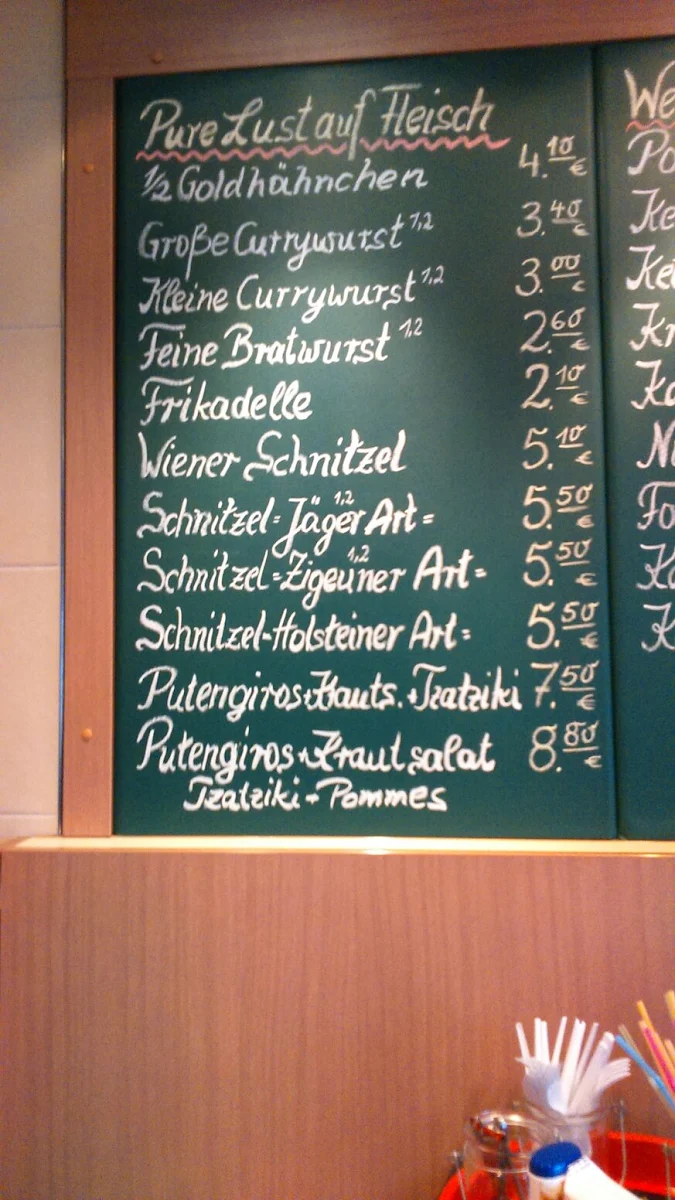 Pure Lust auf Fleisch
½ Goldhähnchen 4.10 €
Große Currywurst 1,2 3.40 €
Kleine Currywurst 1,2 3.00 €
Feine Bratwurst 1,2 2.60 €
Frikadelle 2.10 €
Wiener Schnitzel 5.10 €
Schnitzel=Jäger Art= 1,2 5.50 €
Schnitzel=Zigeuner Art= 1,2 5.50 €
Schnitzel-Holsteiner Art= 5.50 €
Putengiros+Hauts.+Tzatziki 7.50 €
Putengiros+Krautsalat 8.80 €
Tzatziki+Pommes
We
Po
Ke
Kei
Kr
Ka
N
Fo
K
K